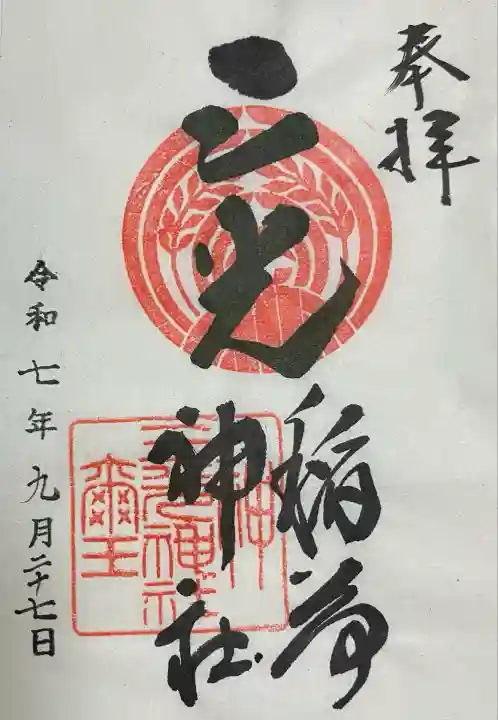 奉拝
三光
稲荷
神社
令和七年九月二十七日
三光神社
神璽